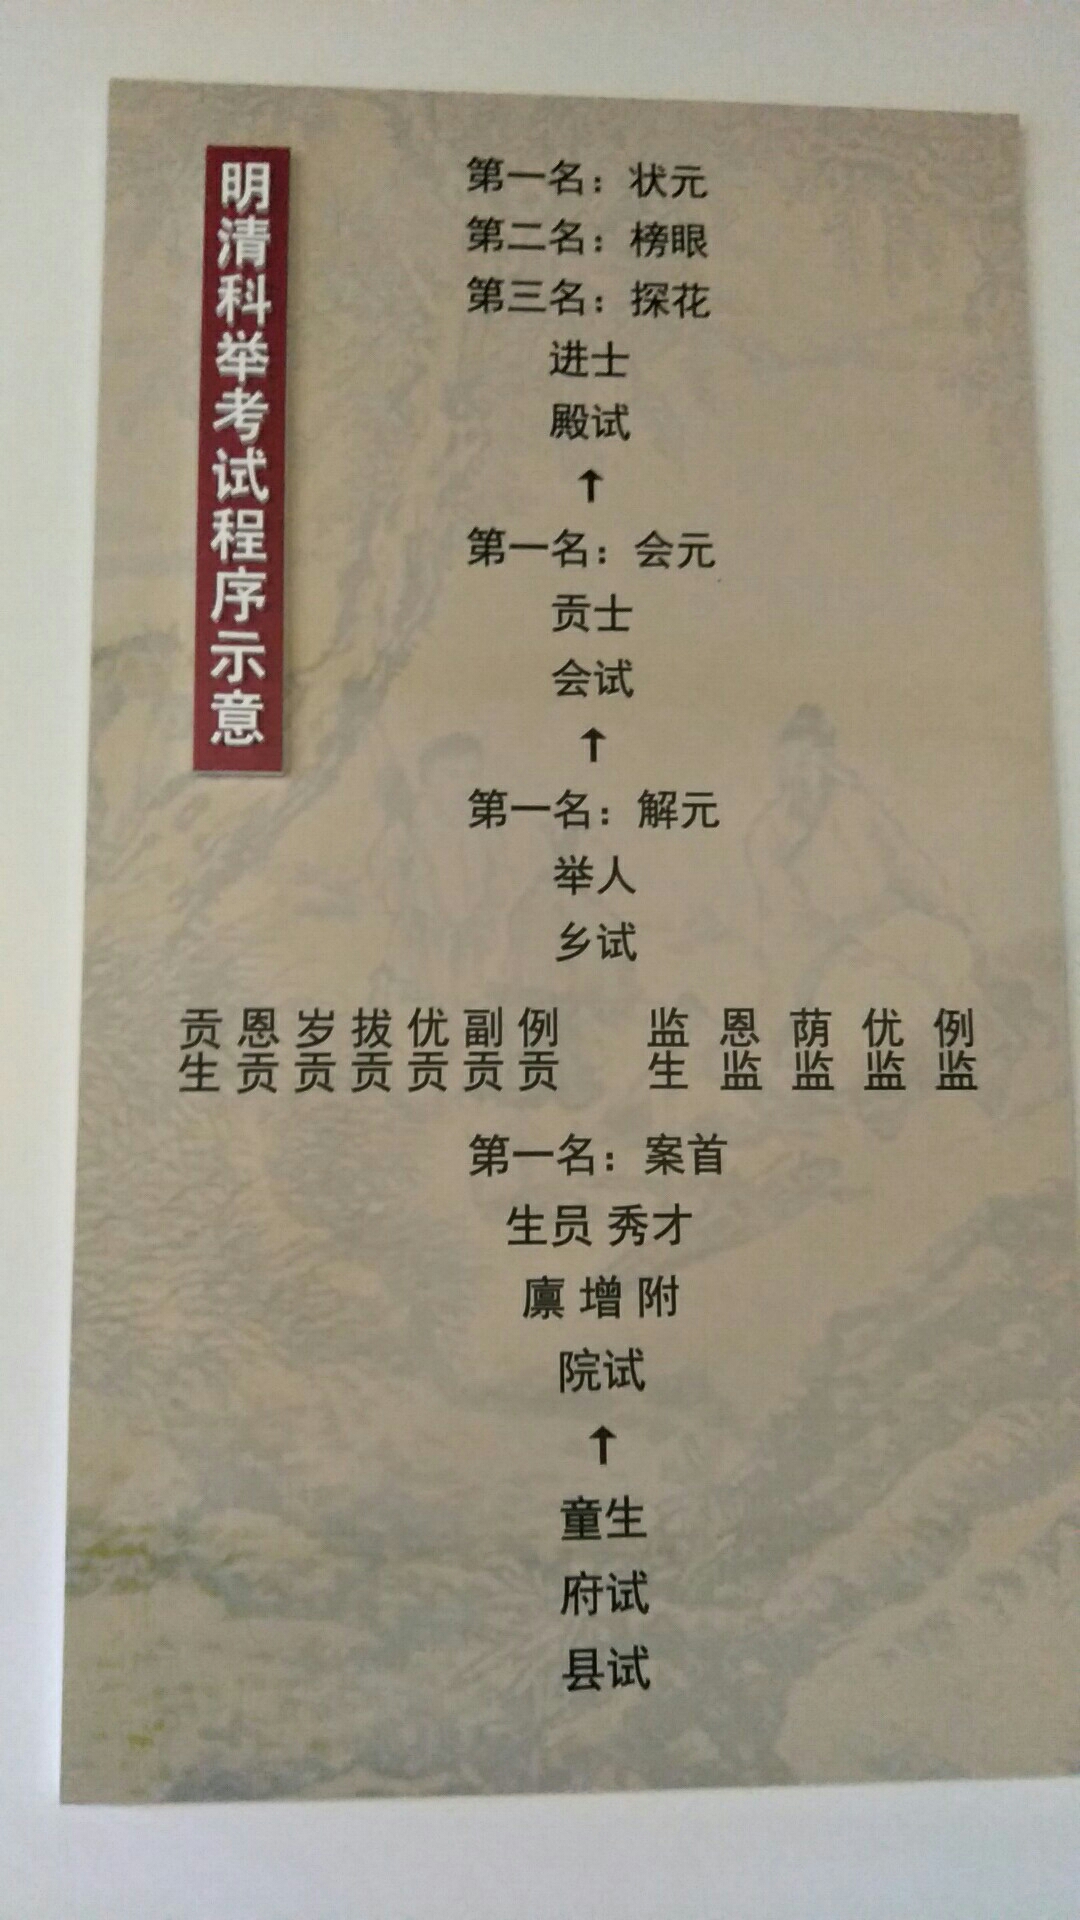 明清科举考试程序示意
第一名：状元
第二名：榜眼
第三名：探花
进士
殿试
↑
第一名：会元
贡士
会试
↑
第一名：解元
举人
乡试
贡生 恩贡 岁贡 拔贡 优贡 副贡 例贡 监生 恩监 荫监 优监 例监
第一名：案首
生员 秀才
廪 增 附
院试
↑
童生
府试
县试